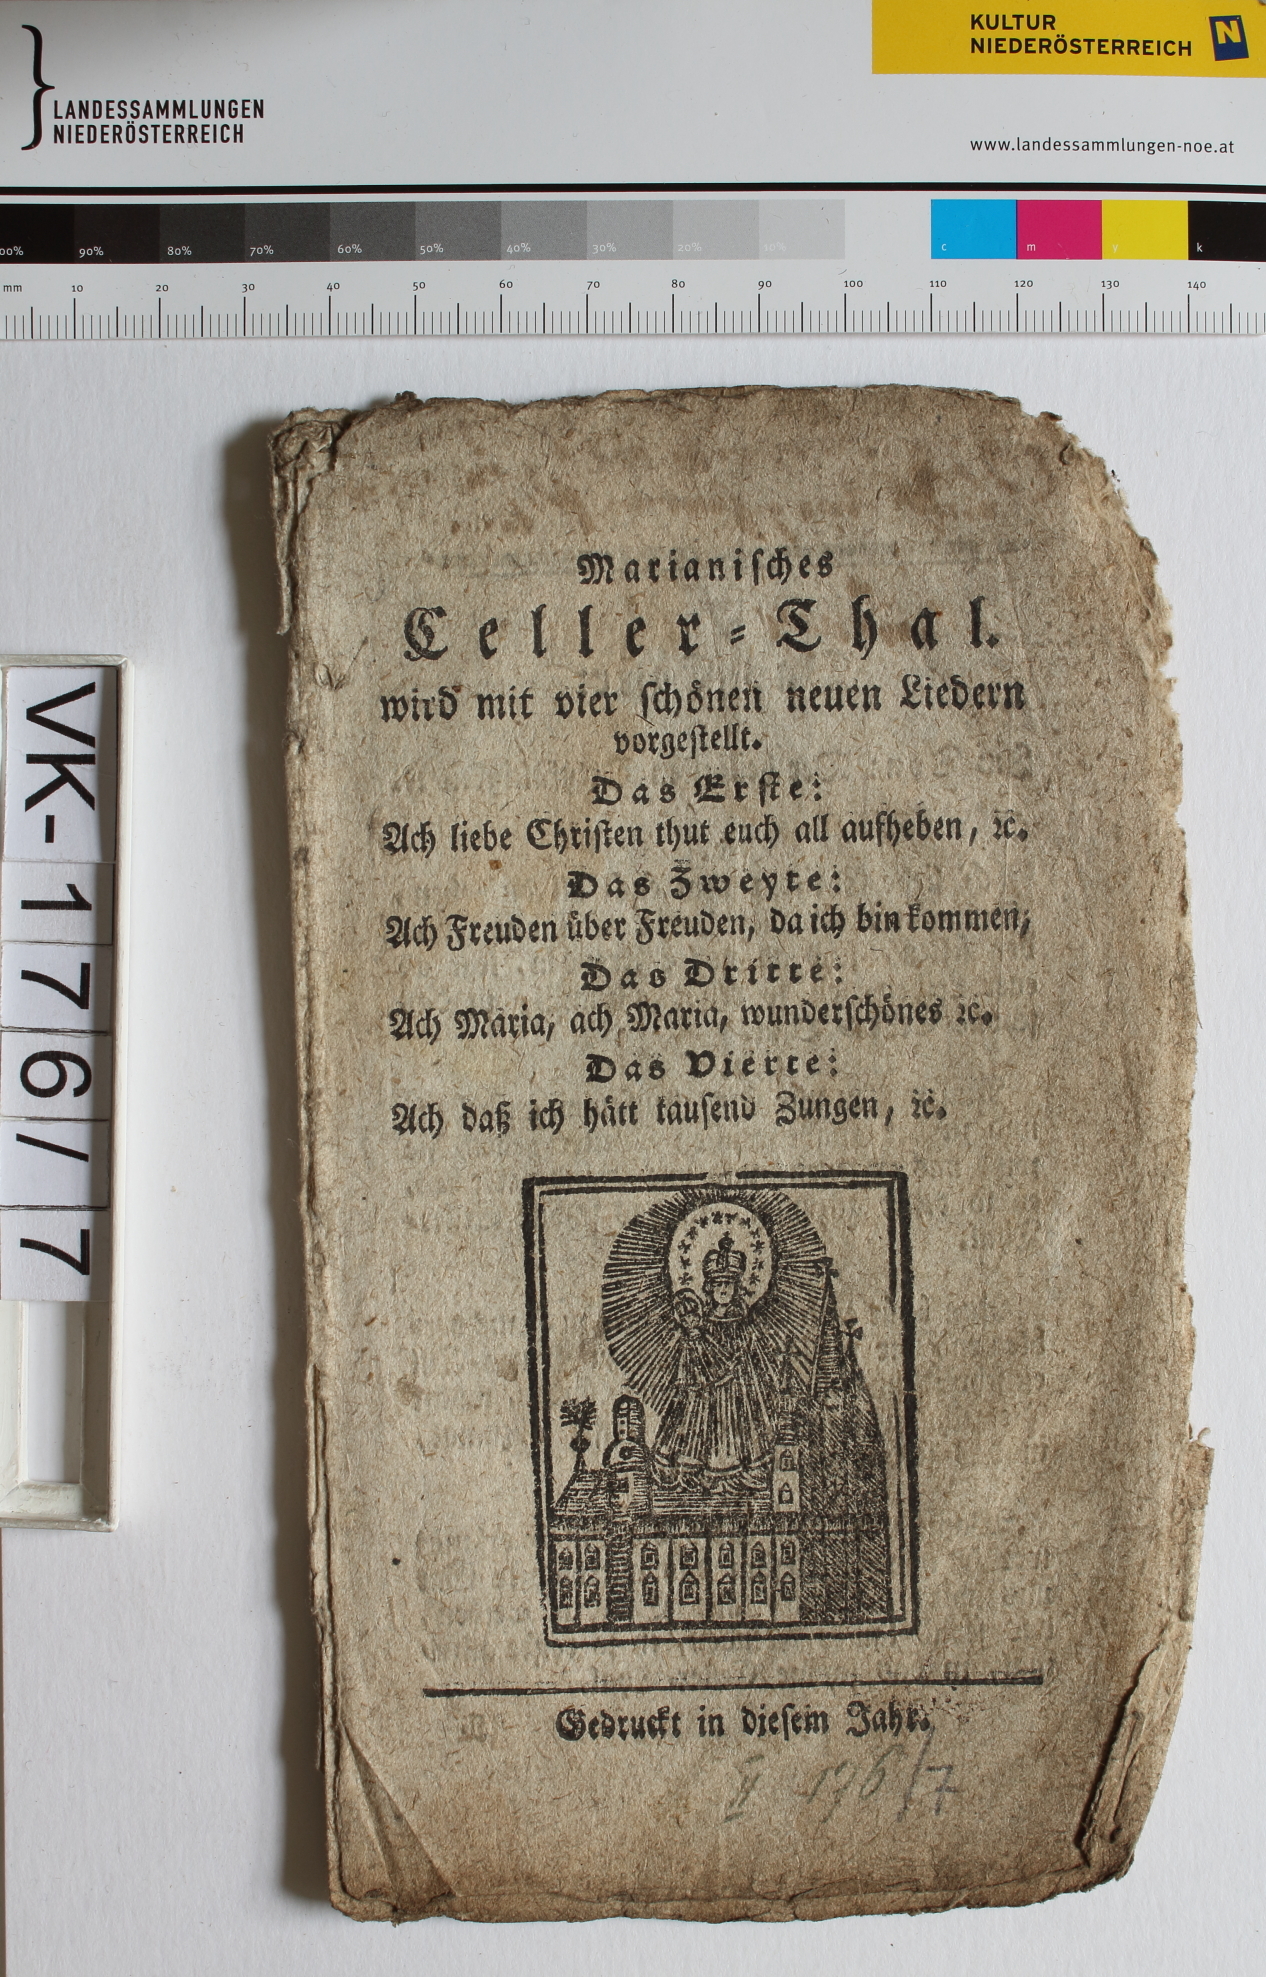 LANDESSAMMLUNGEN
NIEDERÖSTERREICH
KULTUR
NIEDERÖSTERREICH
N
www.landessammlungen-noe.at
00% 90% 80% 70% 60% 50% 40% 30% 20% 10% c m y k
mm 10 20 30 40 50 60 70 80 90 100 110 120 130 140
VK-176/7
Marianiſches
Celler-Thal.
wird mit vier ſchönen neuen Liedern
vorgeſtellt.
Das Erſte:
Ach liebe Chriſten thut euch all aufheben, ꝛc.
Das Zweyte:
Ach Freuden über Freuden, da ich bin kommen,
Das Dritte:
Ach Maria, ach Maria, wunderſchönes ꝛc.
Das Vierte:
Ach daß ich hätt tauſend Zungen, ꝛc.
Gedruckt in dieſem Jahr.
II 176/7